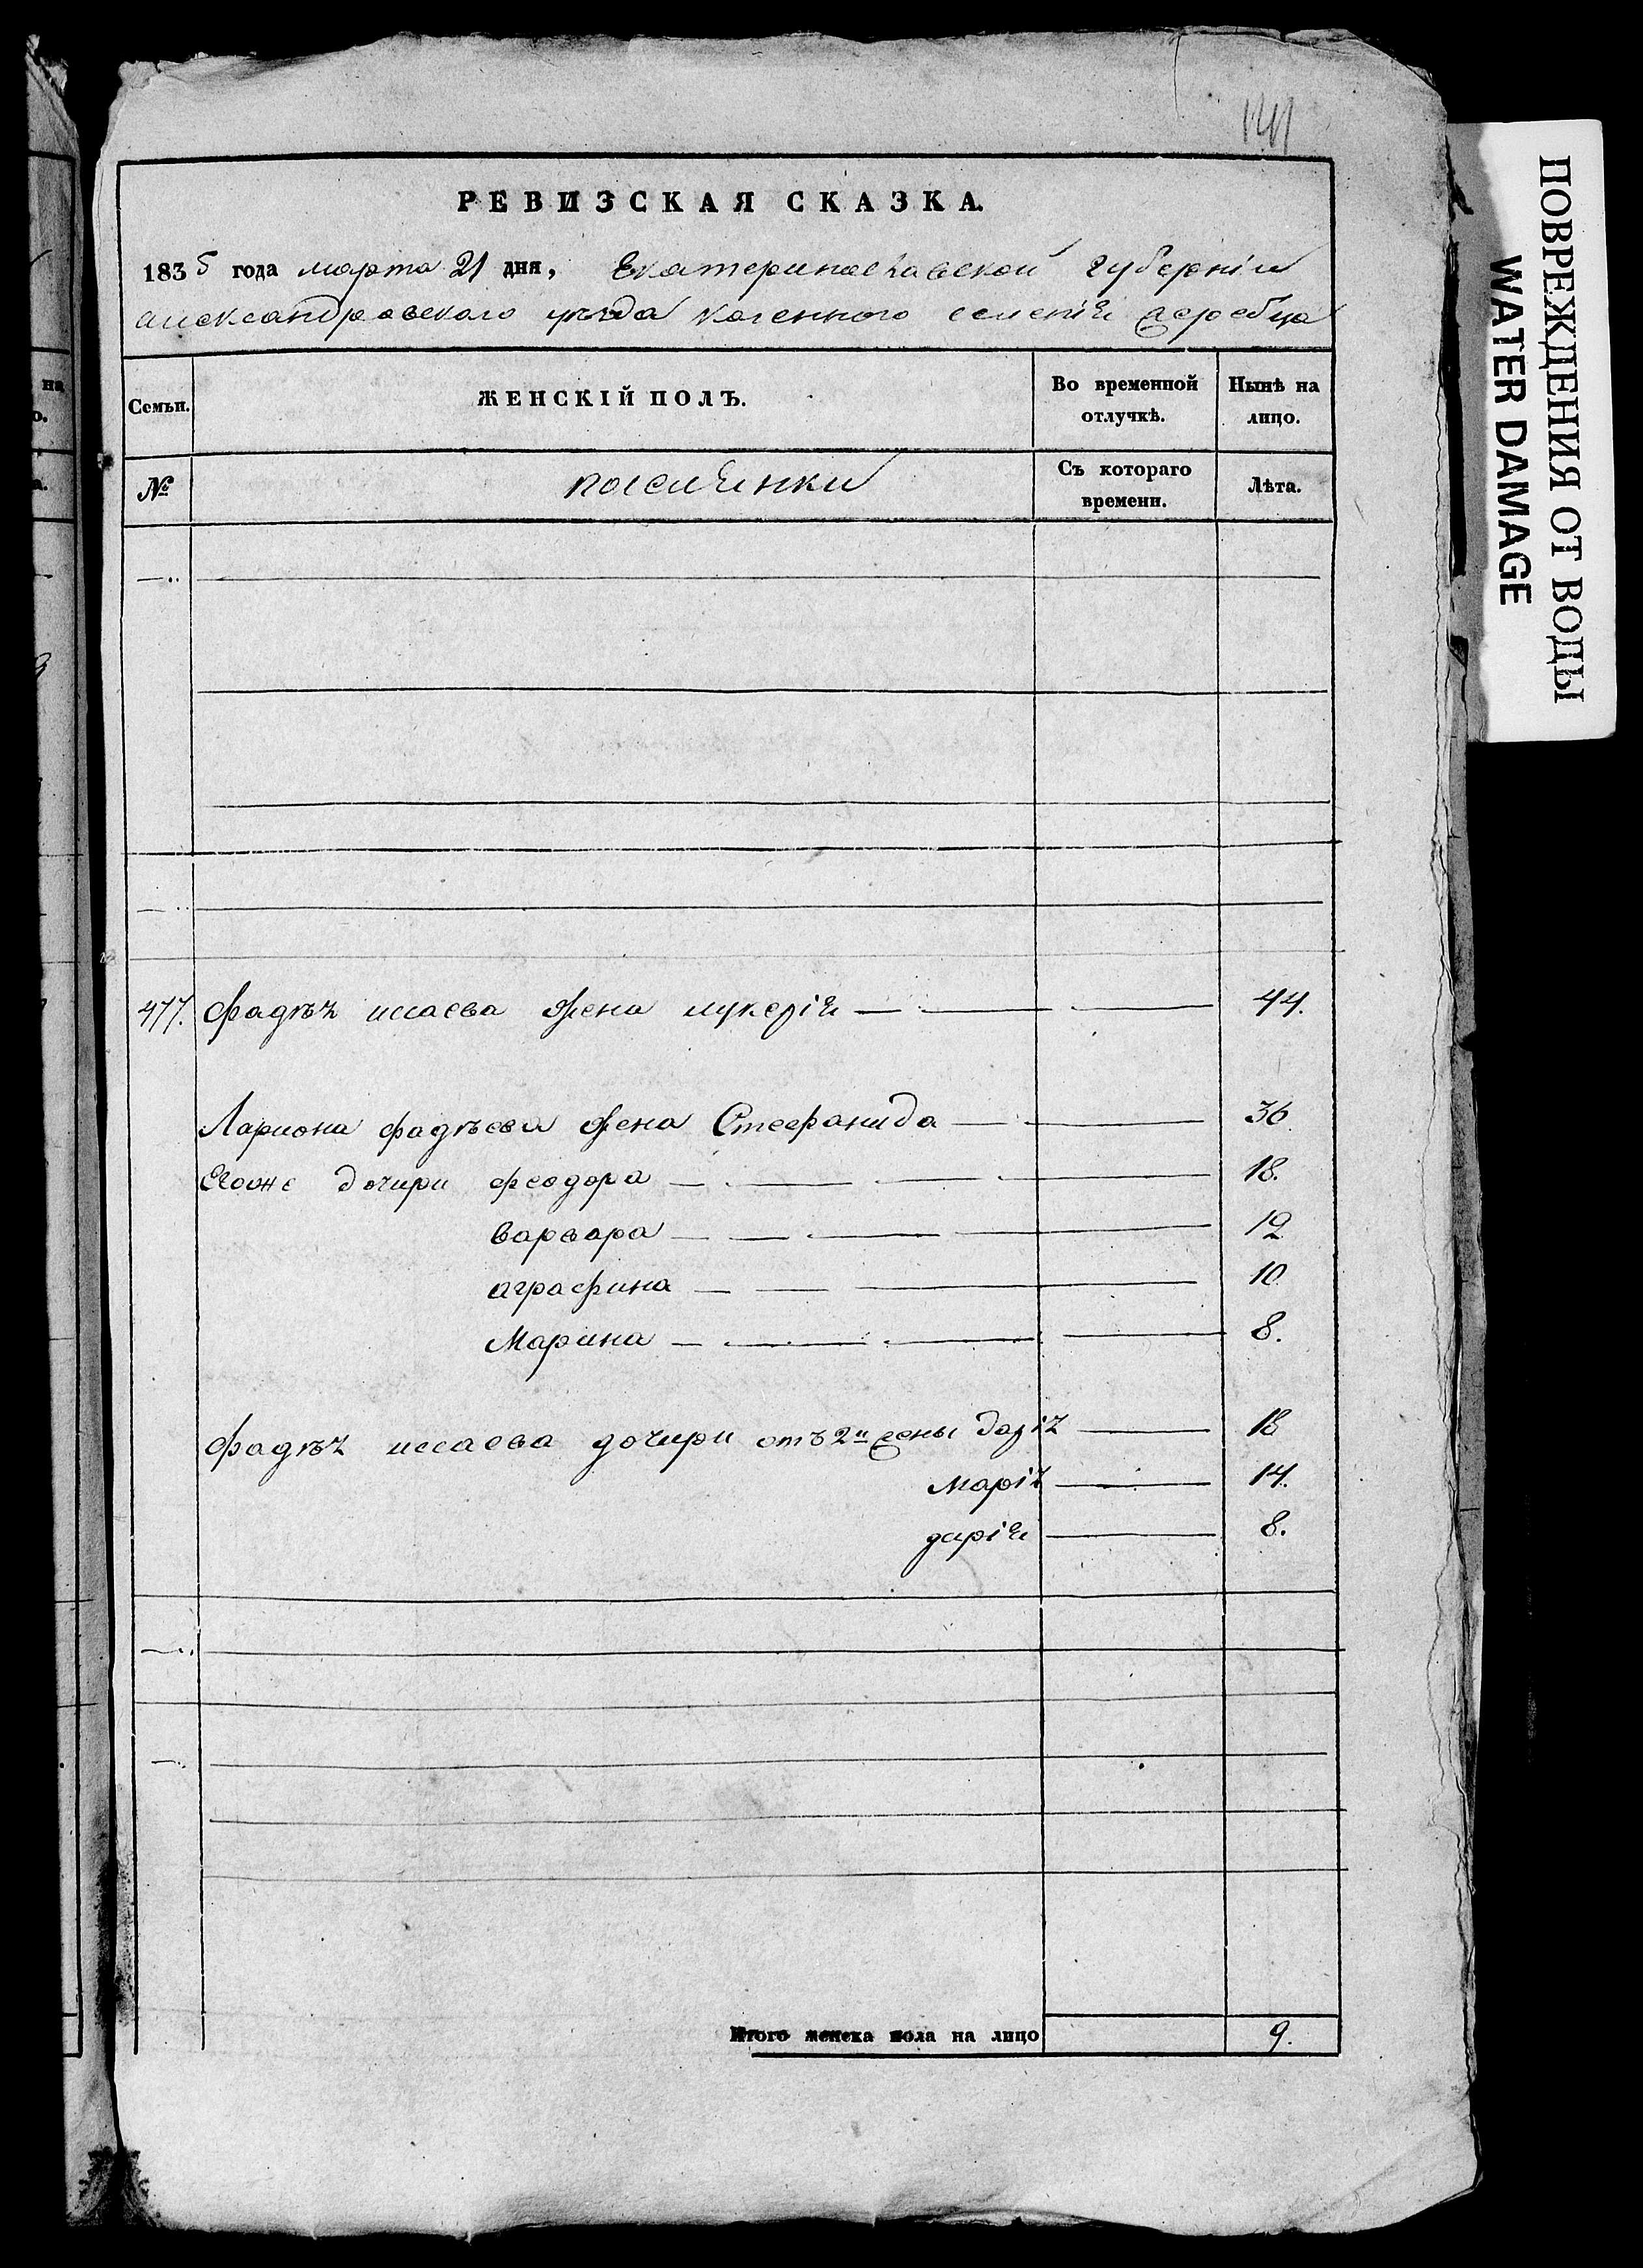 141
РЕВИЗСКАЯ СКАЗКА.
1835 года марта 21 дня, Екатеринославской губерніи
александровского уѣзда казенного селенія жеребца
Семьи.
ЖЕНСКІЙ ПОЛЪ.
Во временной отлучкѣ.
Нынѣ на лицо.
№
поселянки
Съ котораго времени.
Лѣта.
477. Фадѣя исаева жена лукерія 44.
Лариона фадѣева жена Стефанида 36
Егоже дочири феодора 18.
варвара 12
аграфина 10
Марина 8.
Фадѣя исаева дочири отъ 2й жены дарія 18
марія 14.
дарія 8.
Итого женска пола на лицо 9.
ПОВРЕЖДЕНИЯ ОТ ВОДЫ
WATER DAMAGE